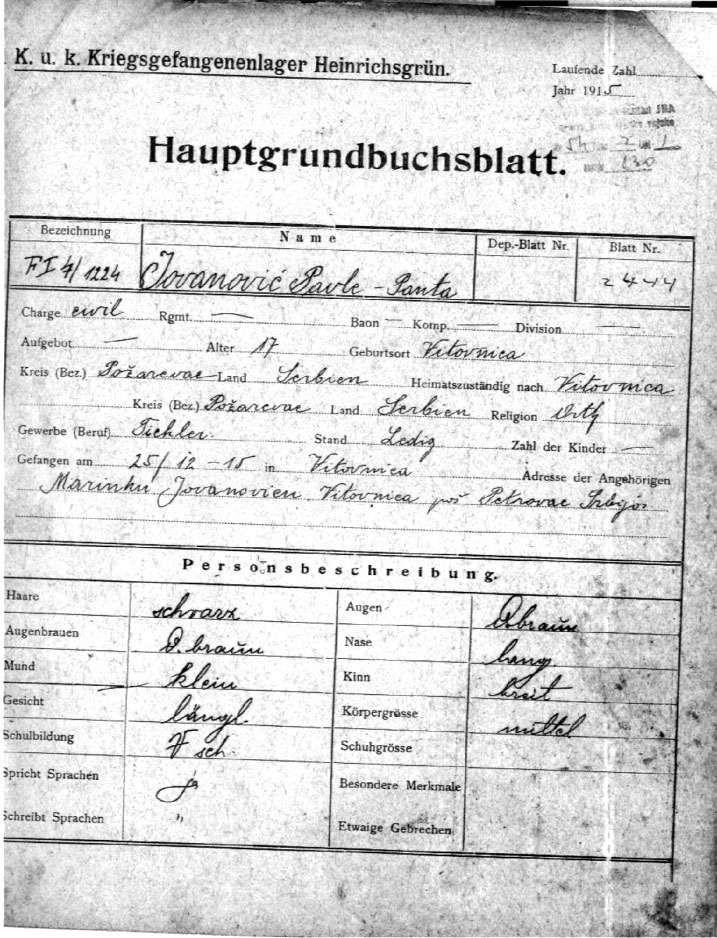 K. u. k. Kriegsgefangenenlager Heinrichsgrün.
Laufende Zahl
Jahr 1915
Hauptgrundbuchsblatt.
Bezeichnung Name Dep.-Blatt Nr. Blatt Nr.
FI 4/1224 Jovanović Pavle - Panta 2444
Charge civil Rgmt. — Baon — Komp. — Division —
Aufgebot — Alter 17 Geburtsort Vitovnica
Kreis (Bez.) Požarevac Land Serbien Heimatszuständig nach Vitovnica
Kreis (Bez.) Požarevac Land Serbien Religion Orth
Gewerbe (Beruf) Tichler Stand Ledig Zahl der Kinder —
Gefangen am 25/12-15 in Vitovnica Adresse der Angehörigen
Marinku Jovanovicu Vitovnica Petrovac Srbija
Personsbeschreibung.
Haare schwarz Augen D.braun
Augenbrauen D. braun Nase lang
Mund klein Kinn breit
Gesicht längl. Körpergrösse mittel
Schulbildung sch. Schuhgrösse
Spricht Sprachen Besondere Merkmale
Schreibt Sprachen " Etwaige Gebrechen